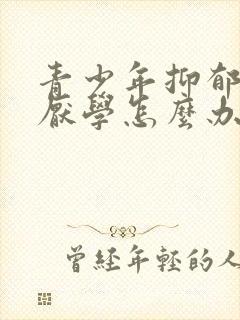 青少年抑郁
厭學怎麼办
曾經年輕的人